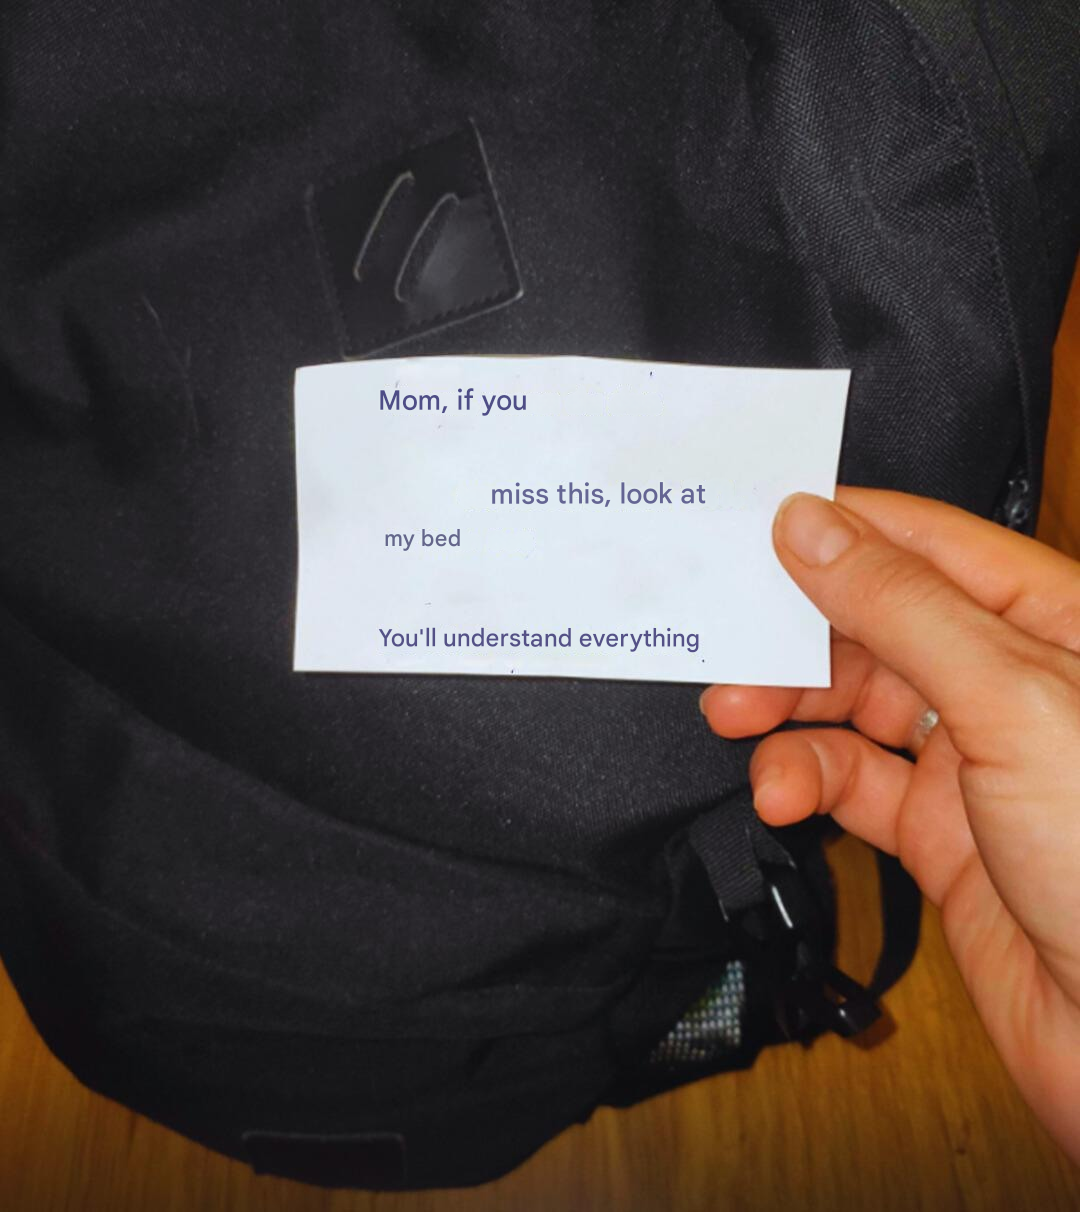 Mom, if you
miss this, look at
my bed
You'll understand everything